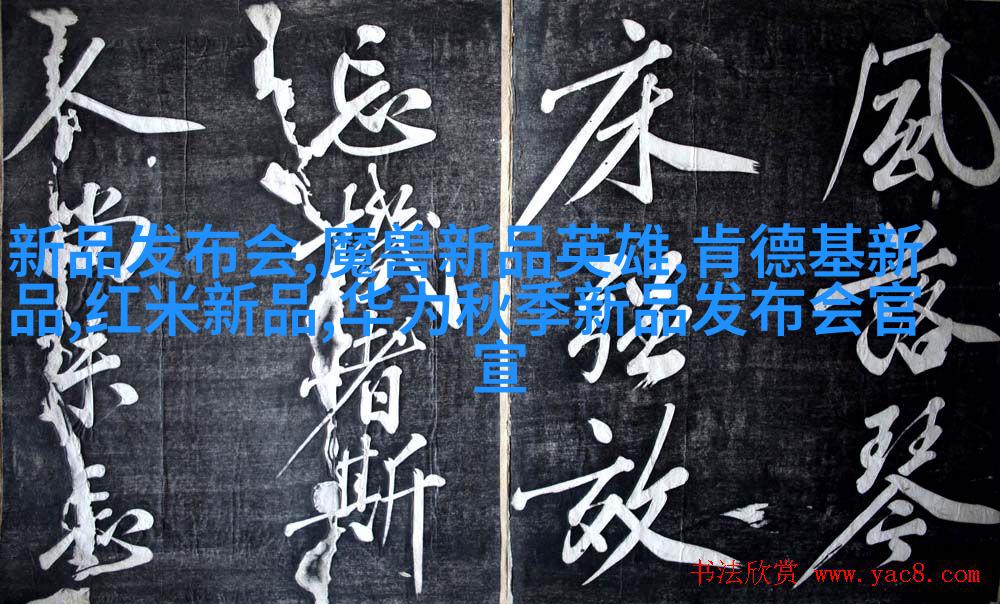 風琴
床強
忘機者斯
尚
新品发布会,魔兽新品英雄,肯德基新
品,红米新品,华为秋季新品发布会官
宣
书法欣赏 www.yac8.com